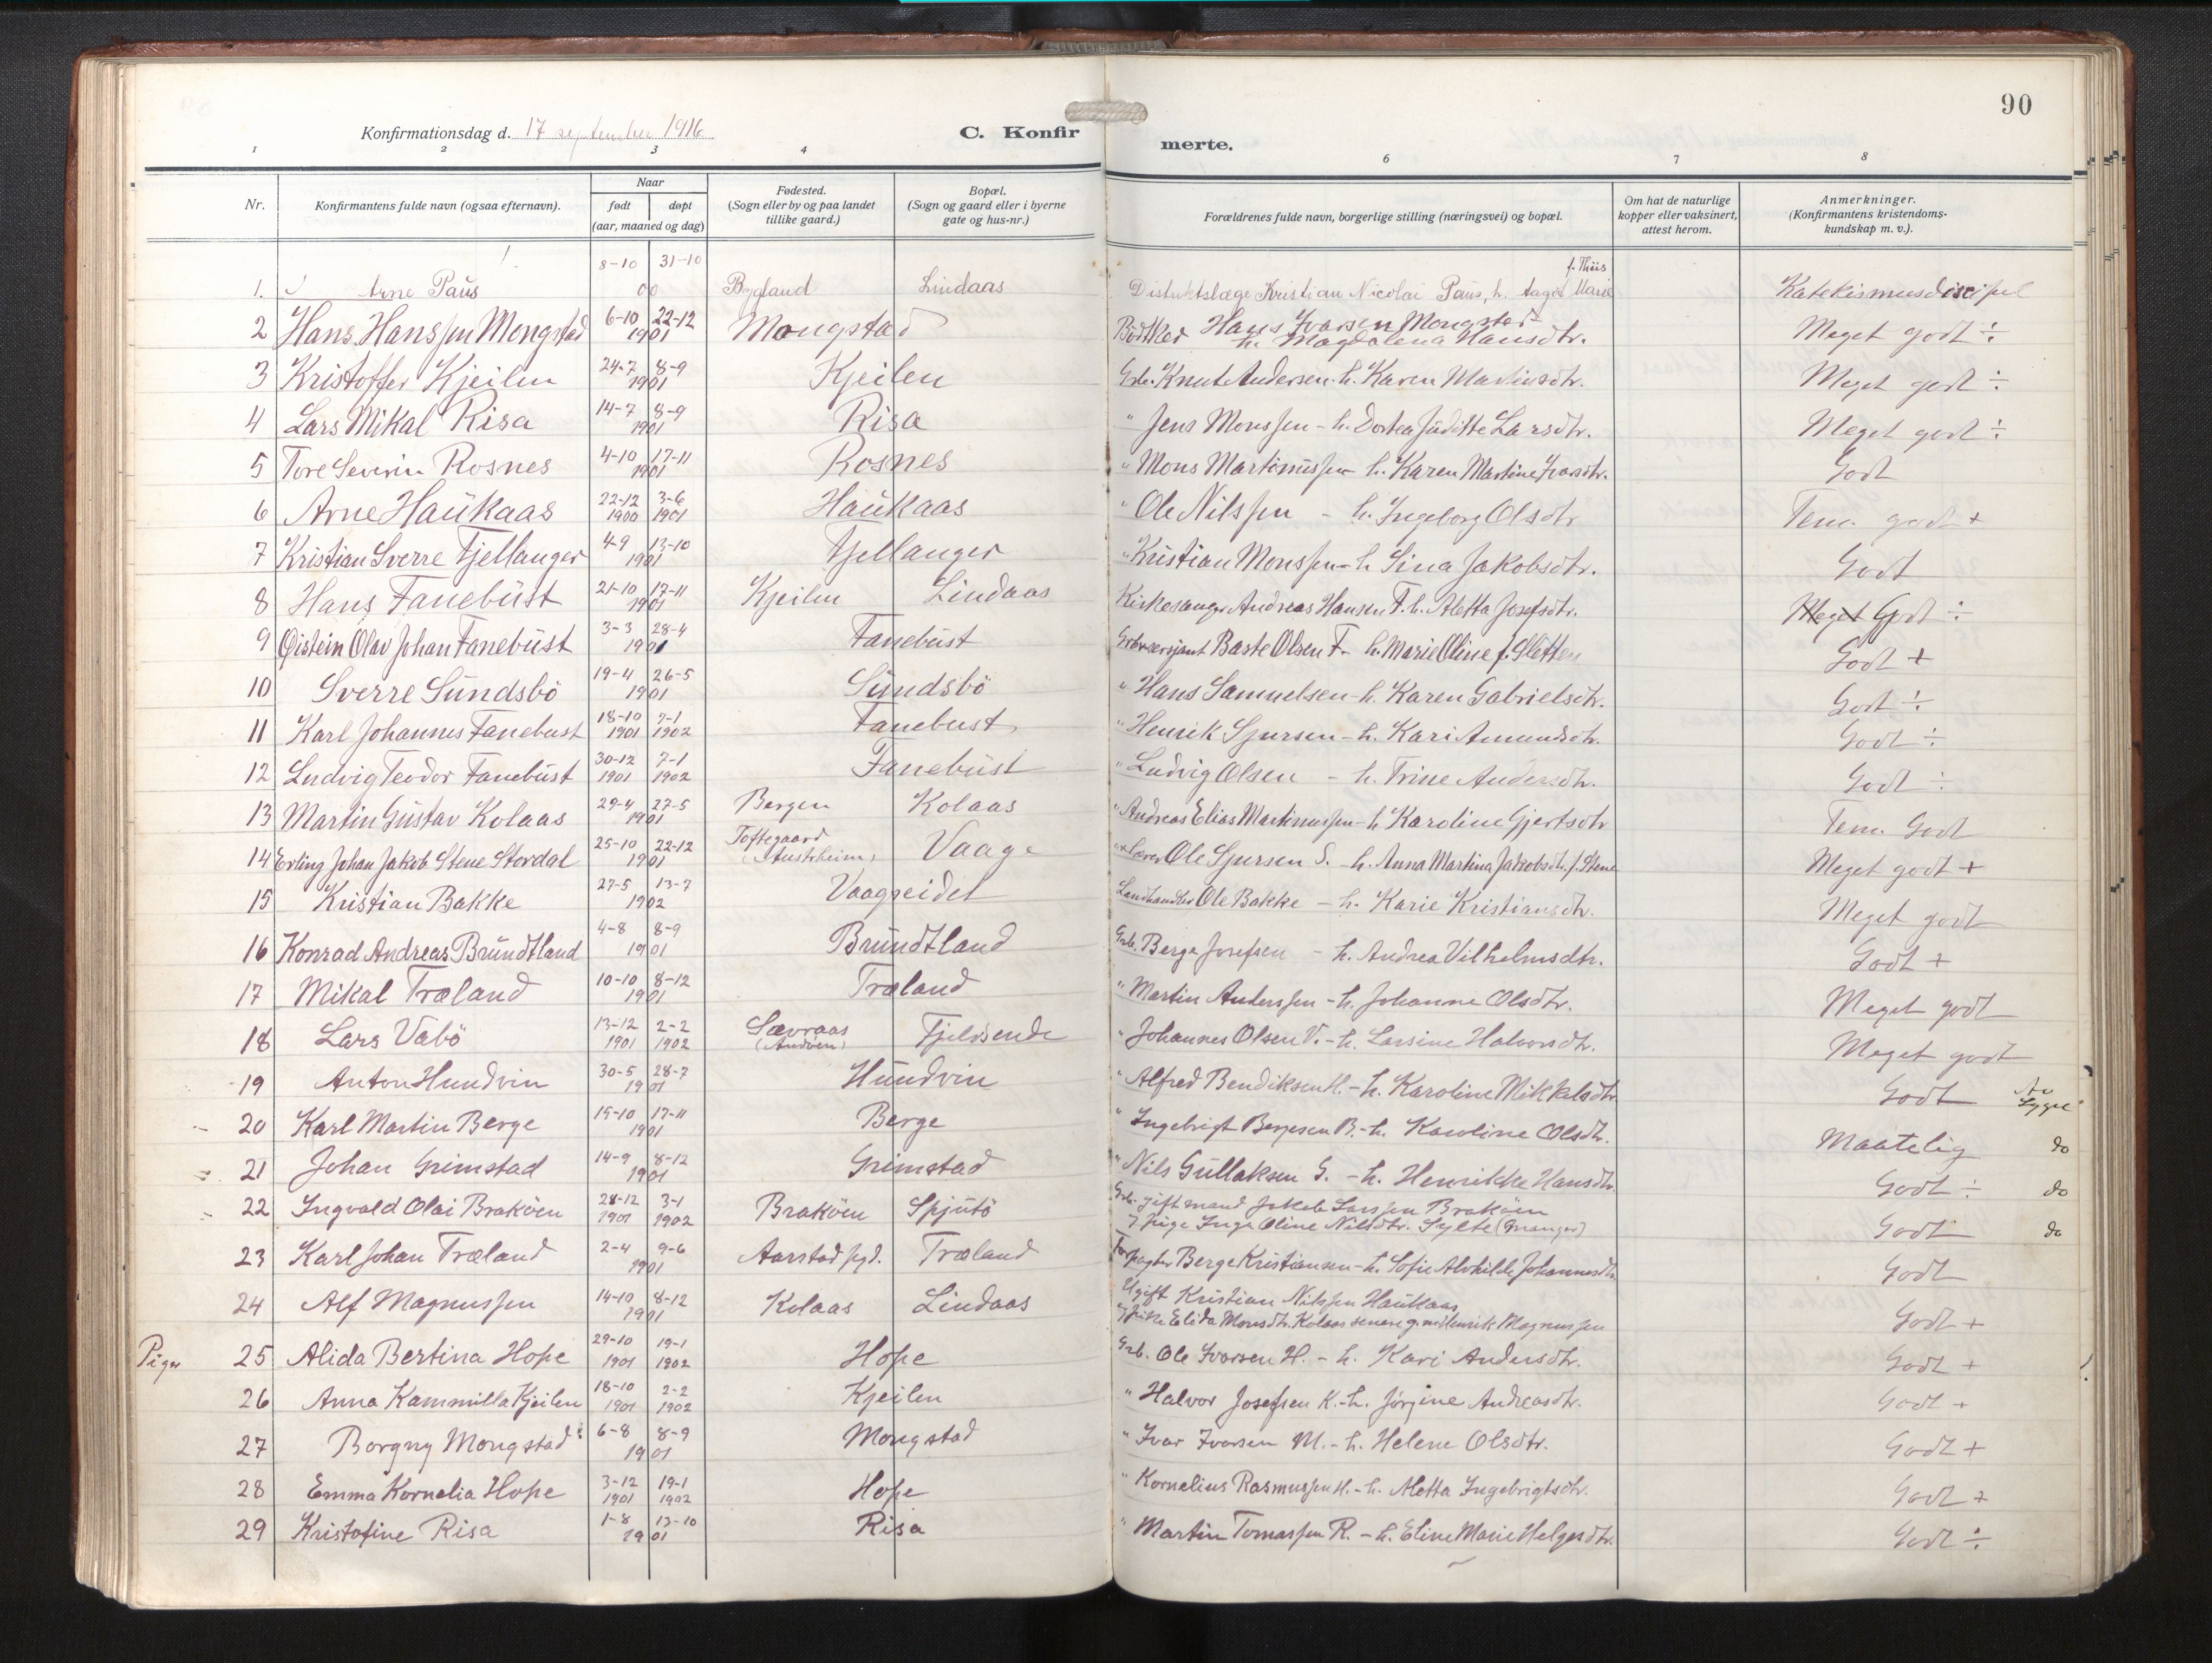 90
Konfirmationsdag d. 17 september 1916
C. Konfirmerte.
1 2 3 4 6 7 8
Nr.
Konfirmantens fulde navn (ogsaa efternavn).
Naar
født
døpt
(aar, maaned og dag)
Fødested.
(Sogn eller by og paa landet
tillike gaard.)
Bopæl.
(Sogn og gaard eller i byerne
gate og hus-nr.)
Forældrenes fulde navn, borgerlige stilling (næringsvei) og bopæl.
Om hat de naturlige
kopper eller vaksinert,
attest herom.
Anmerkninger.
(Konfirmantens kristendoms-
kundskap m. v.).
1. Arne Paus 8-10 31-10 00 Bygland Lindaas Distriktslæge Kristian Nicolai Paus, h. Dagot Marie f. Thiis Katekismusdiscipel
2 Hans Hanssen Mongstad 6-10 22-12 1901 Mongstad Bödtker Hans Ivarsen Mongstad h. Magdalena Hansdtr. Meget godt ÷
3 Kristoffer Kjeilen 24-7 8-9 1901 Kjeilen Grb. Knut Andersen h. Karen Martinsdtr. Meget godt ÷
4 Lars Mikal Risa 14-7 8-9 1901 Risa " Jens Monssen - h. Dortea Juditte Larsdtr. Meget godt ÷
5 Tore Severin Rosnes 4-10 17-11 1901 Rosnes " Mons Martinussen h. Karen Martine Ivarsdtr. Godt
6 Arne Haukaas 22-12 1900 3-6 1901 Haukaas " Ole Nilssen - h. Ingeborg Olsdtr Tem. godt +
7 Kristian Sverre Fjellanger 4-9 13-10 1901 Fjellanger " Kristian Monssen - h Sina Jakobsdtr. Godt
8 Hans Fanebust 21-10 17-11 1901 Kjeilen Lindaas Kirkesanger Andreas Hansen F. h. Aletta Josefsdtr. Meget Godt ÷
9 Øistein Olav Johan Fanebust 3-3 28-4 1901 Fanebust Grb. sersjant Baste Olsen F. h. Marie Oline f. Sletten Godt +
10 Sverre Sundsbö 19-4 26-5 1901 Sundsbö " Hans Samuelsen - h. Karen Gabrielsdtr. Godt ÷
11 Karl Johannes Fanebust 18-10 1901 7-1 1902 Fanebust " Henrik Sjursen - h. Kari Amundsdtr. Godt ÷
12 Ludvig Teodor Fanebust 30-12 1901 7-1 1902 Fanebust " Ludvig Olsen - h. Trine Andersdtr. Godt ÷
13 Martin Gustav Kolaas 29-4 27-5 1901 Bergen Kolaas " Andreas Elias Martinussen - h Karoline Gjertsdtr Tem. Godt
14 Erling Johan Jakob Stene Stordal 25-10 22-12 1901 Toftegaard (Austrheim) Vaage " lærer Ole Sjursen S. - h. Anna Martina Jakobsdtr. f. Stene Meget godt +
15 Kristian Bakke 27-5 13-7 1902 Vaagseidet Landhandler Ole Bakke - h. Karie Kristiansdtr. Meget godt
16 Konrad Andreas Brundtland 4-8 8-9 1901 Brundtland Grb. Berge Josefsen - h. Andrea Vilhelmsdtr. Godt +
17 Mikal Træland 10-10 8-12 1901 Træland " Martin Anderssen - h. Johanne Olsdtr. Meget godt
18 Lars Vabö 13-12 1901 2-2 1902 Sævraas (Andöen) Fjeldsende " Johannes Olsen V. - h. Larsine Halvorsdtr. Meget godt
19 Anton Hundvin 30-5 28-7 1901 Hundvin " Alfred Bendiksen H. - h. Karoline Mikkelsdtr. Godt
20 Karl Martin Berge 15-10 17-11 1901 Berge " Ingebrigt Bergesen B. - h. Karoline Olsdtr. Maatelig do
21 Johan Grimstad 14-9 8-12 1901 Grimstad " Nils Gullaksen G. - h. Henrikke Hansdtr. Godt ÷ do
22 Ingvald Olai Braköen 28-12 1901 3-1 1902 Braköen Spjutö Grb. gift mand Jakob Larssen Braköen
& pige Inga Oline Nilsdtr. Sylte (Manger) Godt do
23 Karl Johan Træland 2-4 9-6 1901 Aarstad sgd. Træland forpagter Berge Kristiansen - h. Sofie Alvhilde Johannesdtr. Godt
24 Alf Magnussen 14-10 8-12 1901 Kolaas Lindaas Ugift Kristian Nilssen Haukaas
& pike Elida Monsdtr. Kolaas senere g. m. Henrik Magnussen Godt +
Piger 25 Alida Bertina Hope 29-10 1901 19-1 1902 Hope Grb. Ole Ivarsen H. - h. Kari Andersdtr. Godt +
26 Anna Kammilla Kjeilen 18-10 1901 2-2 1902 Kjeilen " Halvor Josefsen K. - h. Jørgine Andreasdtr. Godt +
27 Borgny Mongstad 6-8 8-9 1901 Mongstad " Ivar Ivarsen M. - h. Helene Olsdtr. Godt +
28 Emma Kornelia Hope 3-12 1901 19-1 1902 Hope " Kornelius Rasmussen H. - h. Aletta Ingebrigtsdtr. Godt +
29 Kristofine Risa 1-8 13-10 1901 Risa " Martin Tomassen R. - h. Eline Marie Helgesdtr. Godt ÷